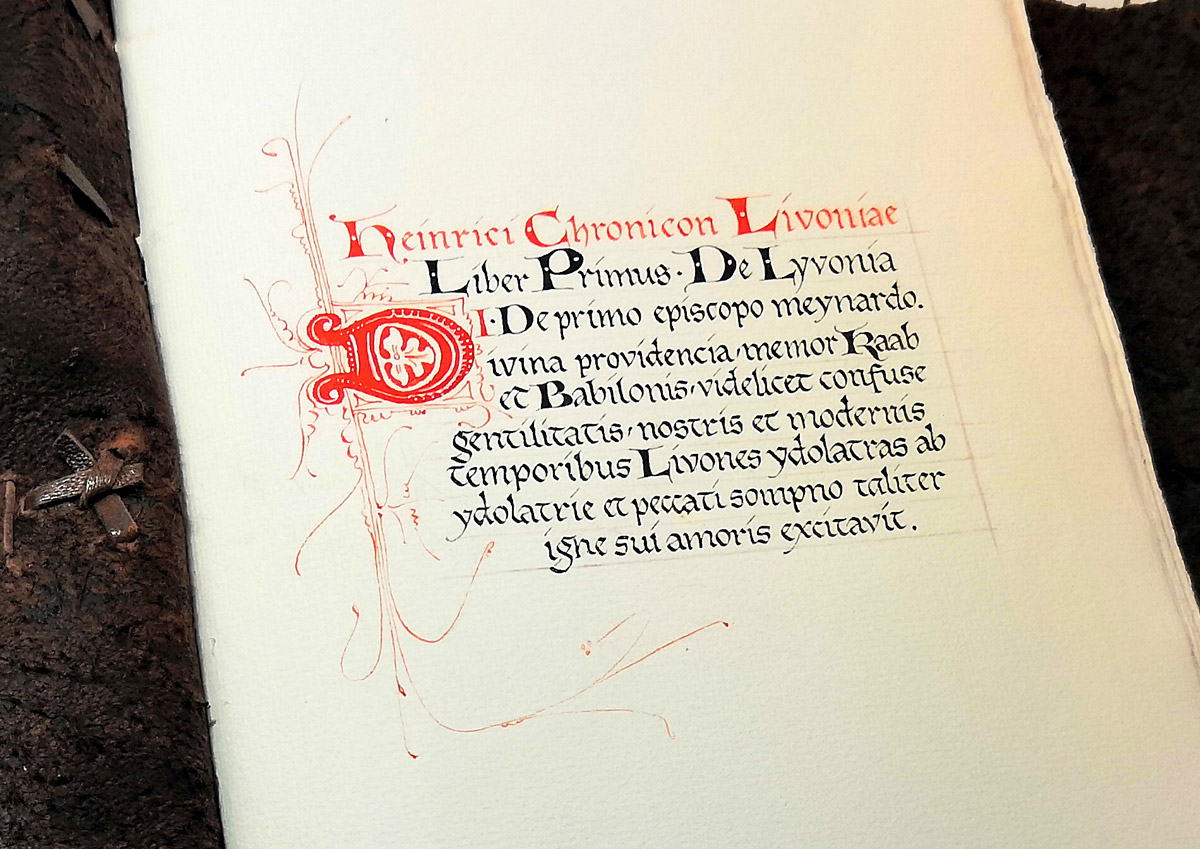 Heinrici Chronicon Livoniae
Liber Primus · De Lyvonia
I · De primo episcopo meynardo.
Divina providencia, memor Raab
et Babilonis, videlicet confuse
gentilitatis, nostris et modernis
temporibus Livones ydolatras ab
ydolatrie et peccati sompno taliter
igne sui amoris excitavit.